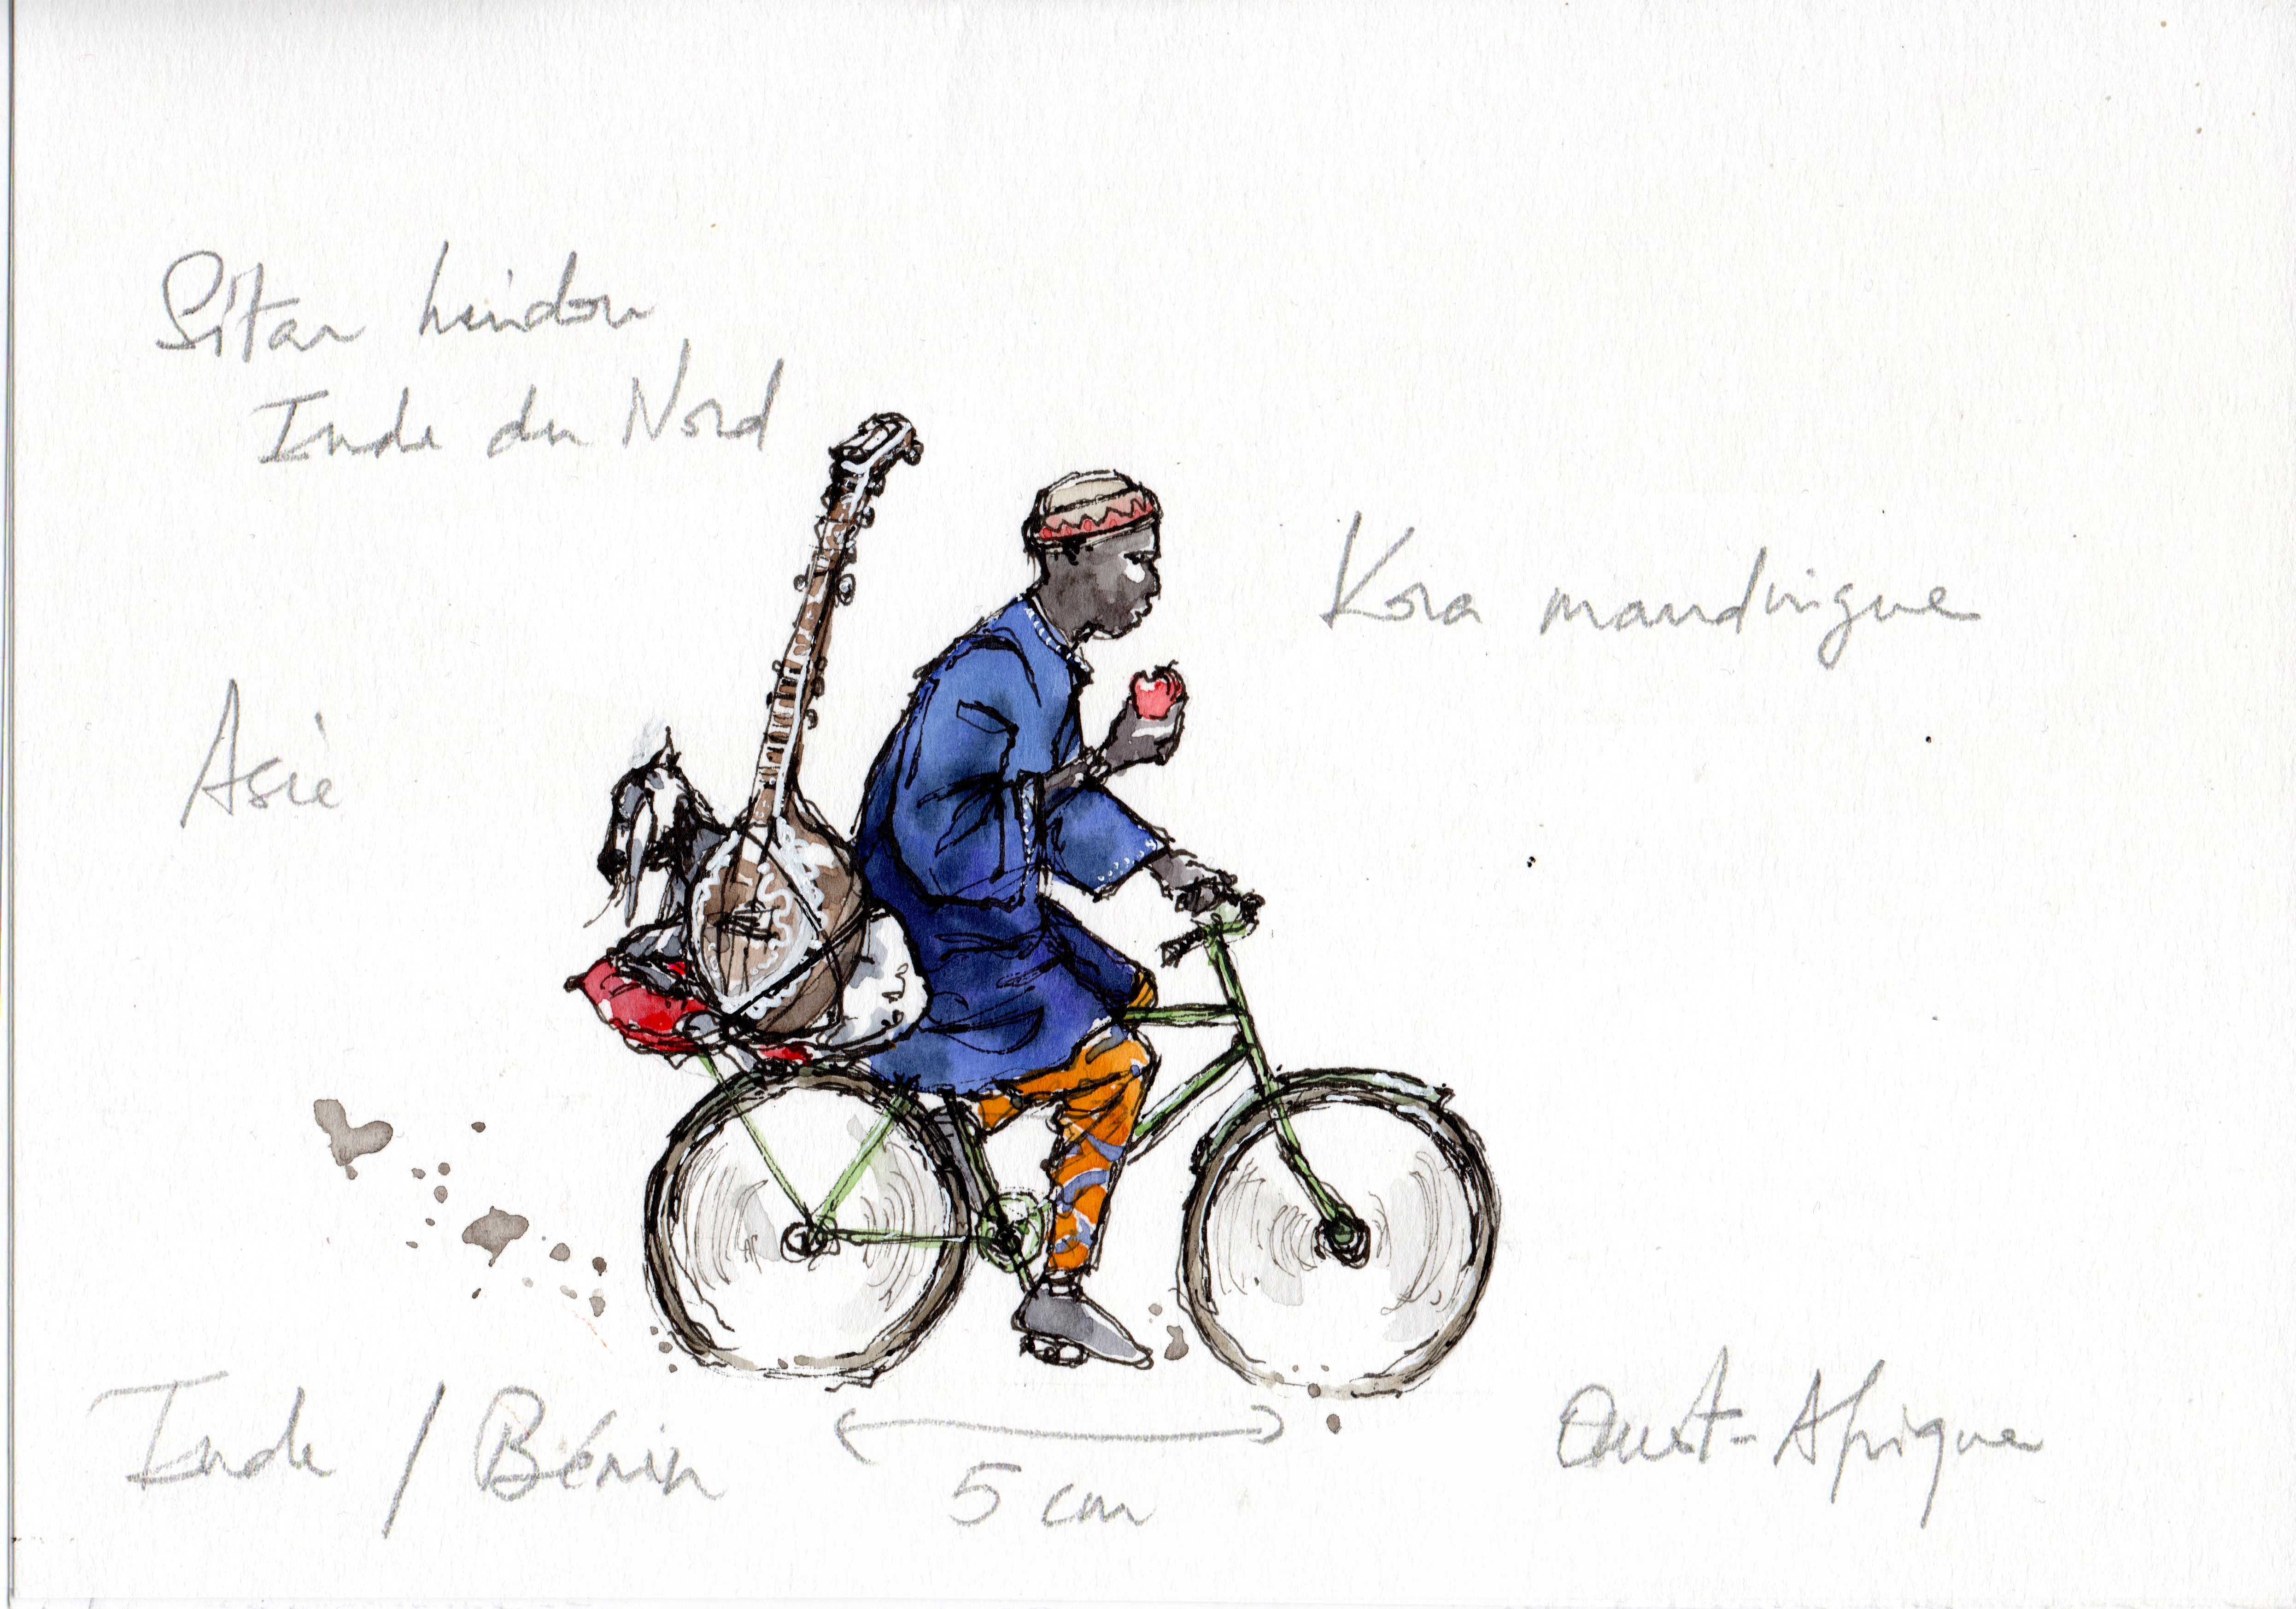 Sitar hindou
Inde du Nord
Kora mandingue
Asie
Inde / Bénin
5 cm
Ouest-Afrique